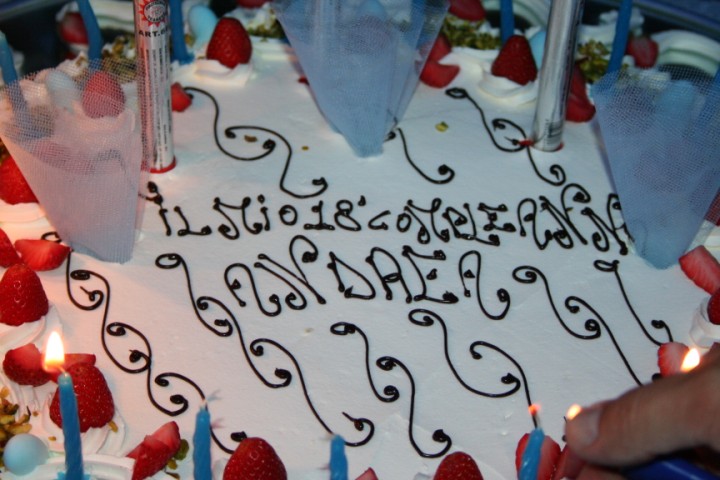 ART.
iL Mio 18° COMPLEANN
ANDREA